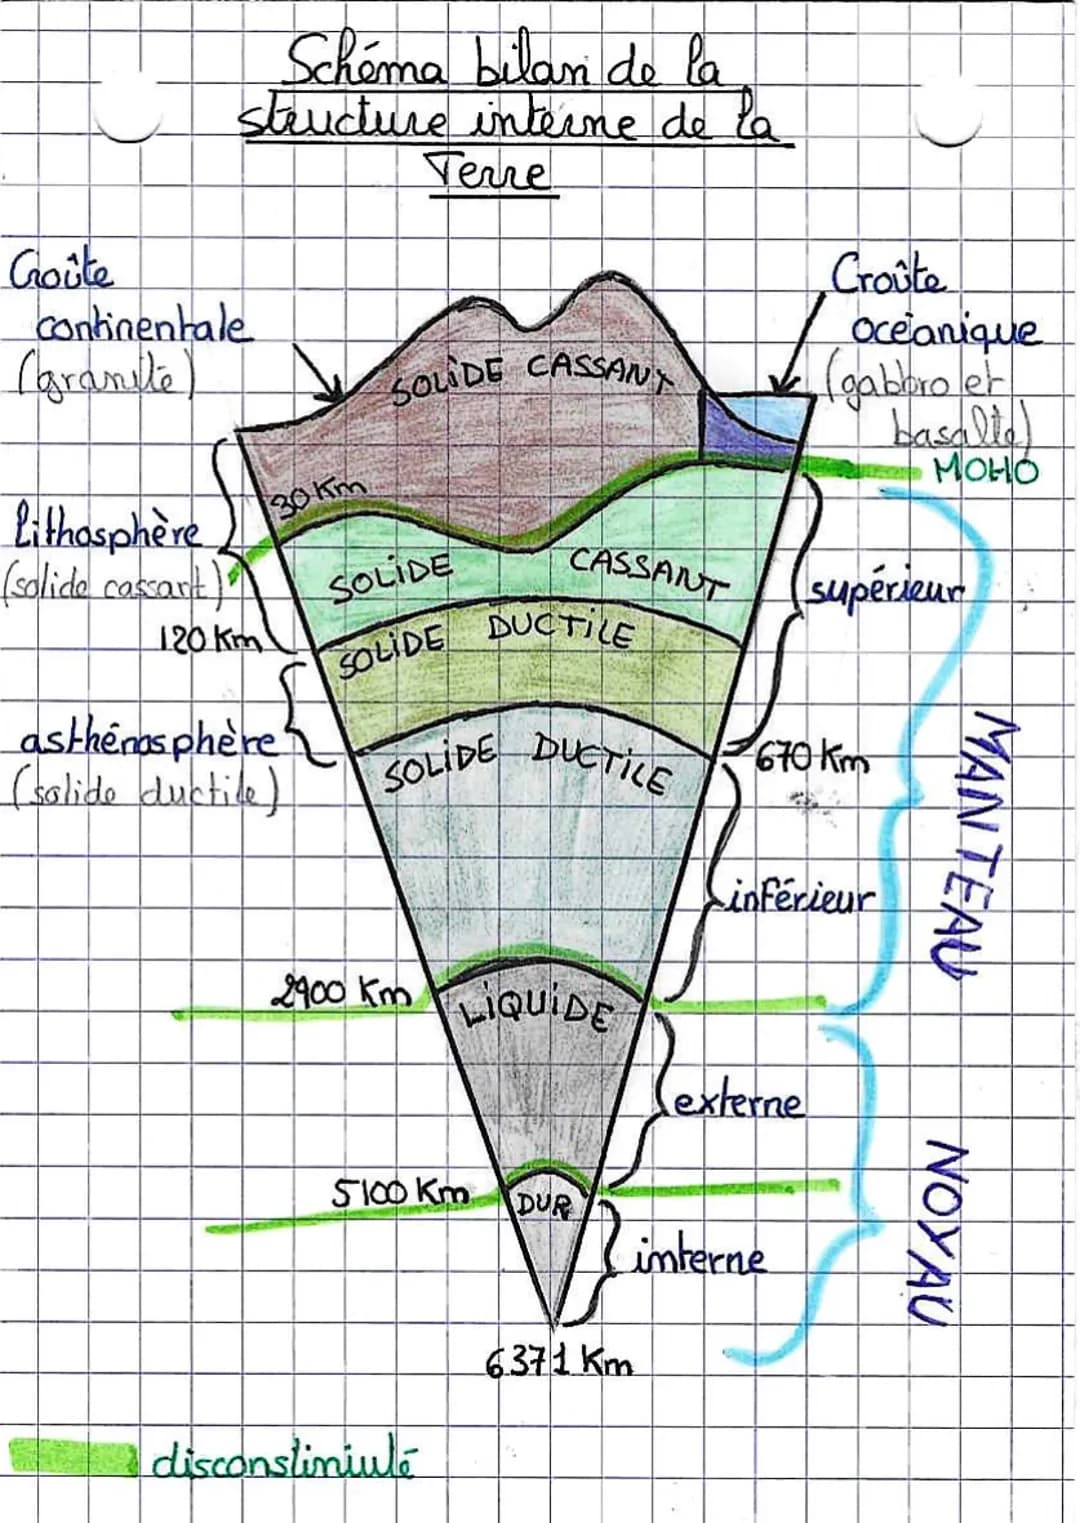 Schéma bilan de la
structure interne de la
Terre
Croûte
continentale
(granite)
Croûte
océanique
(gabbro et
basalte)
MOHO
SOLIDE CASSANT
30 Km
lithosphère
(solide cassant)
120 Km
SOLIDE CASSANT
supérieur
SOLIDE DUCTILE
asthénosphère
(solide ductile)
SOLIDE DUCTILE
670 Km
MANTEAU
inférieur
2900 Km
LIQUIDE
externe
5100 Km
DUR
interne
NOYAU
6371 Km
disconstiniuté